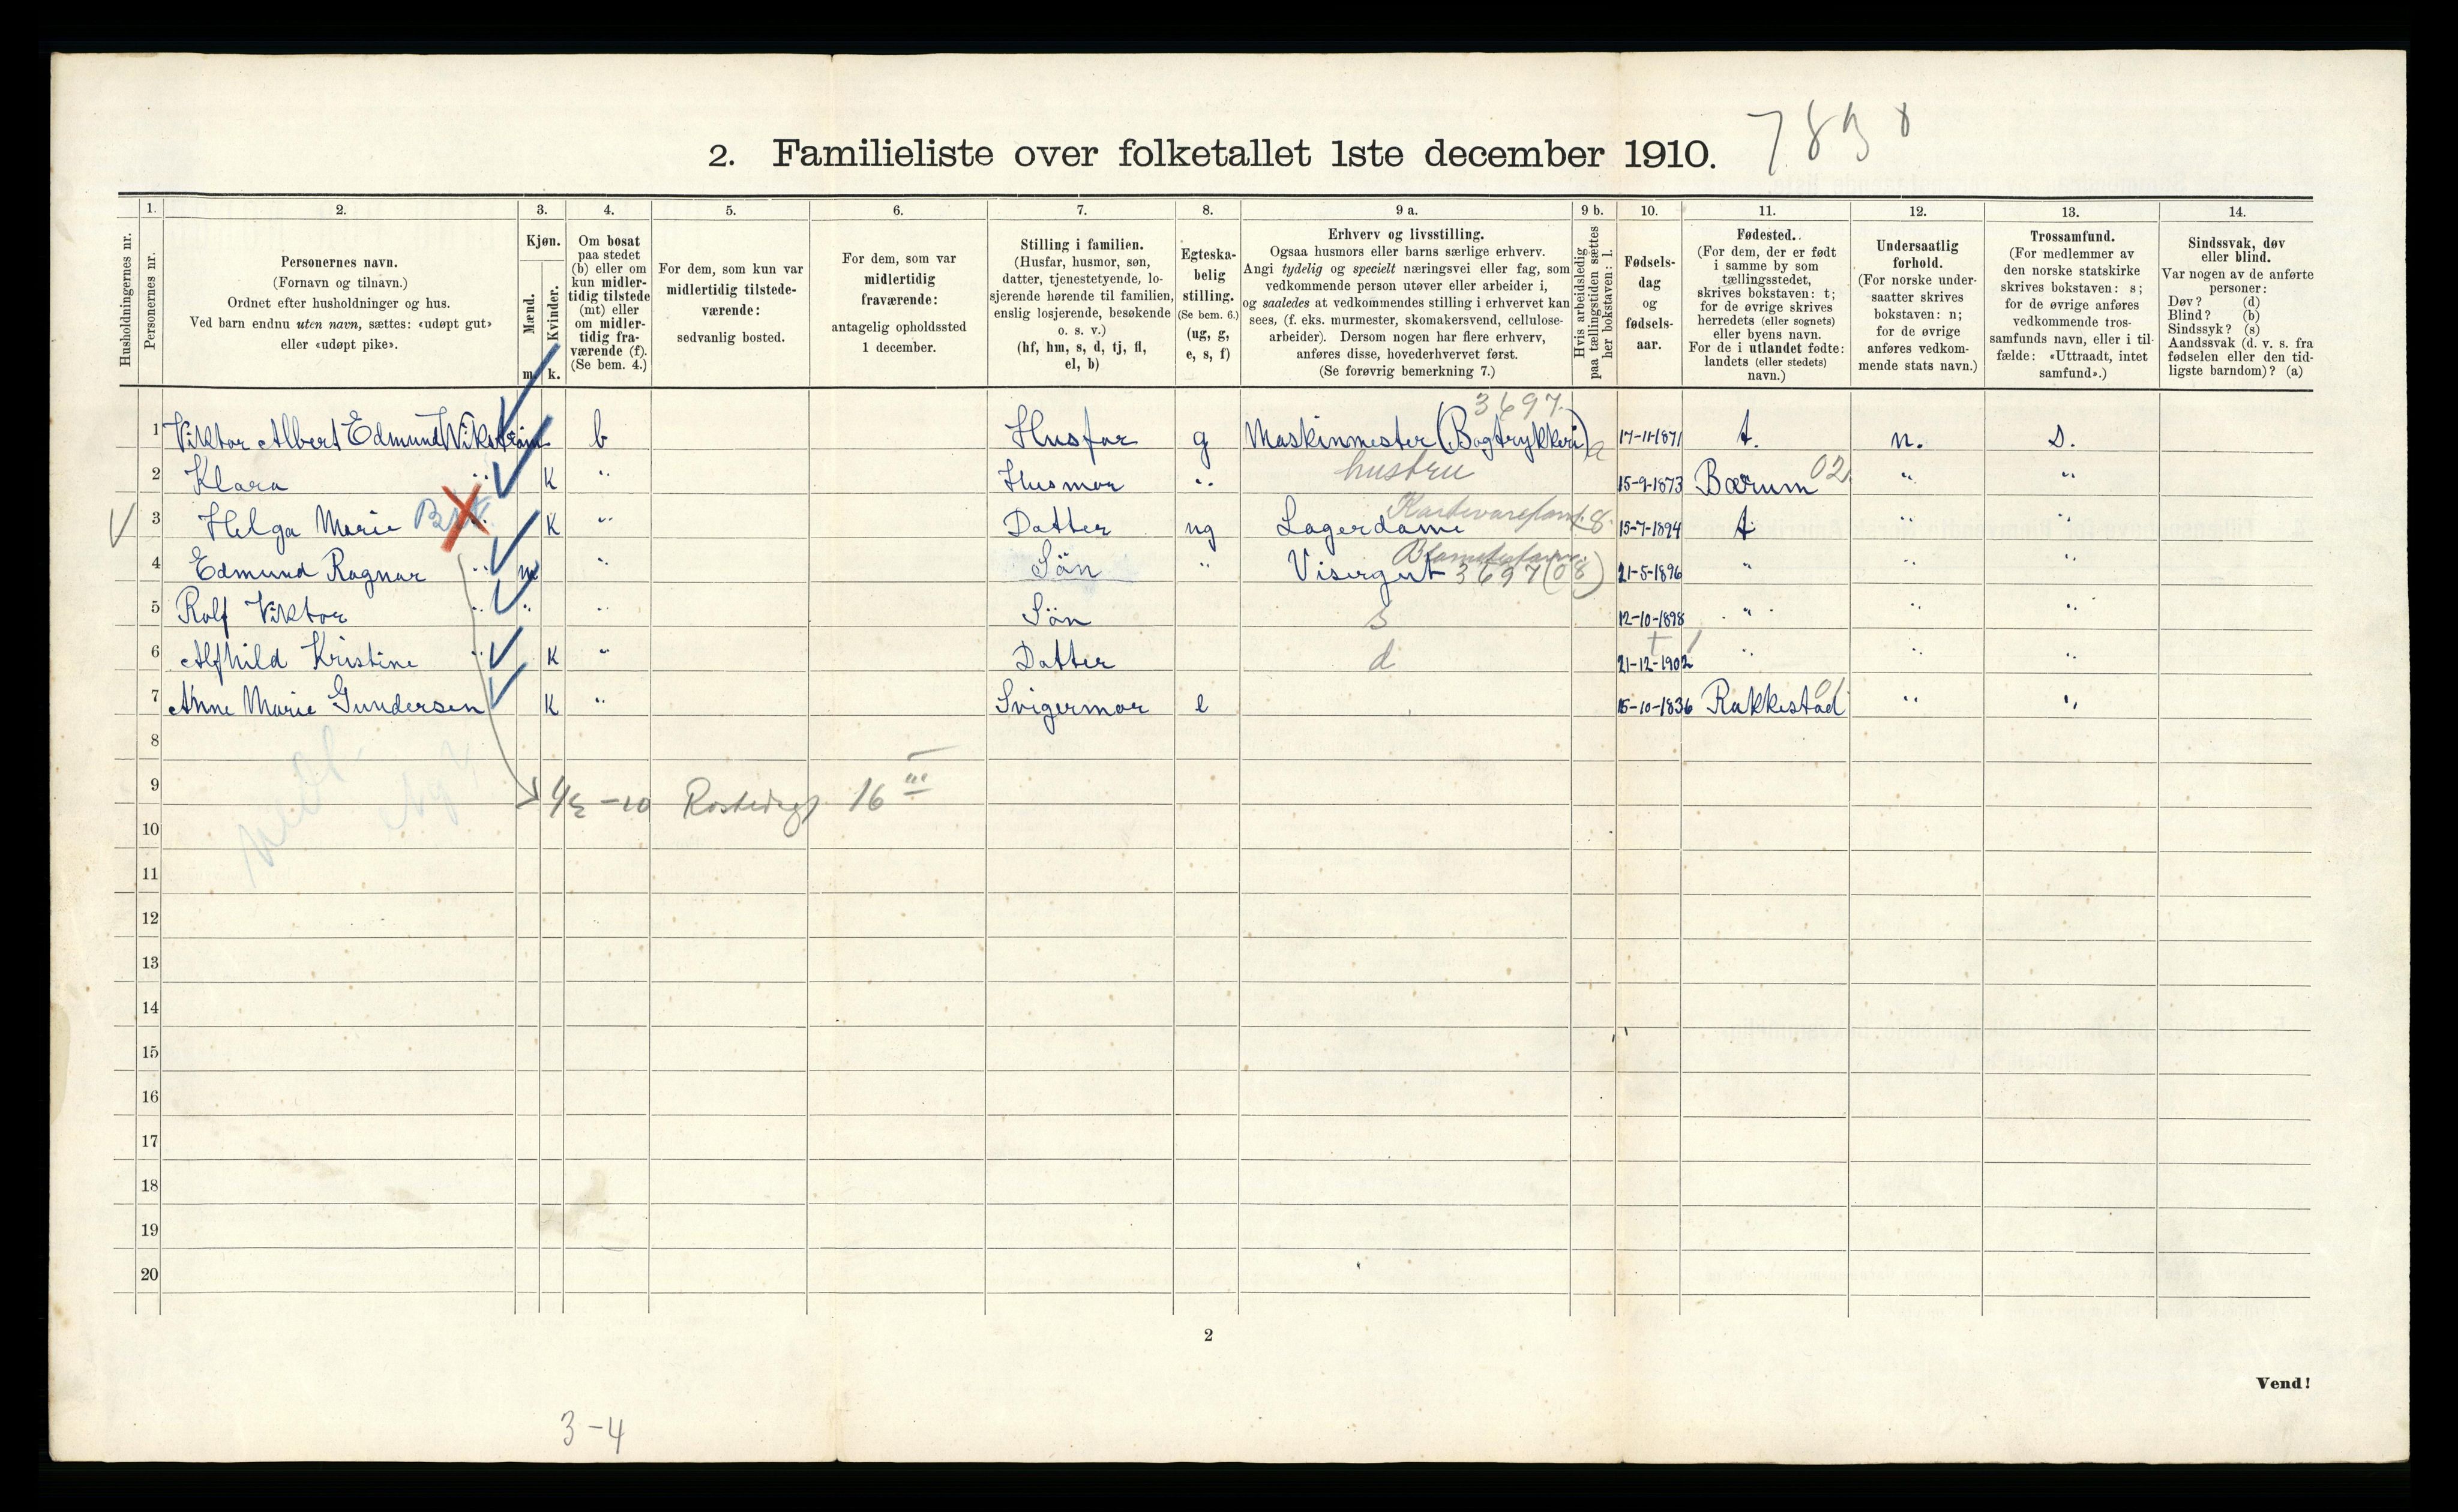 2. Familieliste over folketallet 1ste december 1910.
Husholdningernes nr.
1.
Personernes nr.
2.
Personernes navn.
(Fornavn og tilnavn.)
Ordnet efter husholdninger og hus.
Ved barn endnu uten navn, sættes: «udøpt gut»
eller «udøpt pike».
3.
Kjøn.
Mænd.
Kvinder.
m. k.
4.
Om bosat
paa stedet
(b) eller om
kun midler-
tidig tilstede
(mt) eller
om midler-
tidig fra-
værende (f).
(Se bem. 4.)
5.
For dem, som kun var
midlertidig tilstede-
værende:
sedvanlig bosted.
6.
For dem, som var
midlertidig
fraværende:
antagelig opholdssted
1 december.
7.
Stilling i familien.
(Husfar, husmor, søn,
datter, tjenestetyende, lo-
sjerende hørende til familien,
enslig losjerende, besøkende
o. s. v.)
(hf, hm, s, d, tj, fl,
el, b)
8.
Egteska-
belig
stilling.
(Se bem. 6.)
(ug, g,
e, s, f)
9 a.
Erhverv og livsstilling.
Ogsaa husmors eller barns særlige erhverv.
Angi tydelig og specielt næringsvei eller fag, som
vedkommende person utøver eller arbeider i,
og saaledes at vedkommendes stilling i erhvervet kan
sees, (f. eks. murmester, skomakersvend, cellulose-
arbeider). Dersom nogen har flere erhverv,
anføres disse, hovederhvervet først.
(Se forøvrig bemerkning 7.)
9 b.
Hvis arbeidsledig
paa tællingstiden sættes
her bokstaven: l.
10.
Fødsels-
dag
og
fødsels-
aar.
11.
Fødested.
(For dem, der er født
i samme by som
tællingsstedet,
skrives bokstaven: t;
for de øvrige skrives
herredets (eller sognets)
eller byens navn.
For de i utlandet fødte:
landets (eller stedets)
navn.)
12.
Undersaatlig
forhold.
(For norske under-
saatter skrives
bokstaven: n;
for de øvrige
anføres vedkom-
mende stats navn.)
13.
Trossamfund.
(For medlemmer av
den norske statskirke
skrives bokstaven: s;
for de øvrige anføres
vedkommende tros-
samfunds navn, eller i til-
fælde: «Uttraadt, intet
samfund».)
14.
Sindssvak, døv
eller blind.
Var nogen av de anførte
personer:
Døv? (d)
Blind? (b)
Sindssyk? (s)
Aandssvak (d. v. s. fra
fødselen eller den tid-
ligste barndom)? (a)
3697.
1 Viktor Albert Edmund Wikström b Husfar g Maskinmester (Bogtrykkeri) a 17-11-1871 t. n. S.
2 Klara " K " Husmor " hustru 15-9-1873 Bærum 02. " "
3 Helga Marie " K " Datter ug Lagerdame 8. 15-7-1894 t " "
4 Edmund Ragnar " m " Sön " Visergut 3697 (08) 21-5-1896 " " "
5 Rolf Viktor " " " Sön s 12-10-1898 " " "
6 Alfhild Kristine " K " Datter d 21-12-1902 " " "
7 Anne Marie Gundersen K " Svigermor e 15-10-1836 Rakkestad 01 " "
8
9 16 III
10
11
12
13
14
15
16
17
18
19
20
2
Vend!
3-4